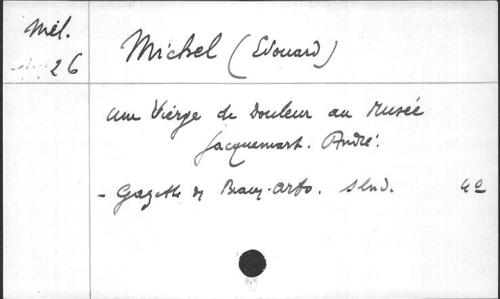 Mél.
26
Michel (Edouard)
une Vierge de Douleur au Musée
Jacquemart. André.
- Gazette des Beaux-Arts. slnd. 4º